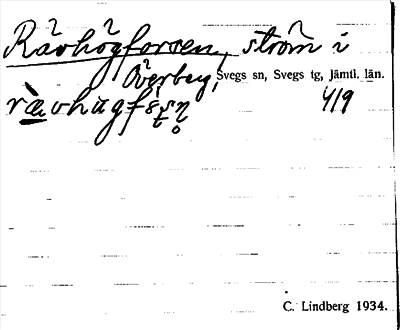 Rävhögforsen, ström i
Överberg, Svegs sn, Svegs tg, Jämtl. län.
4/9
C. Lindberg 1934.